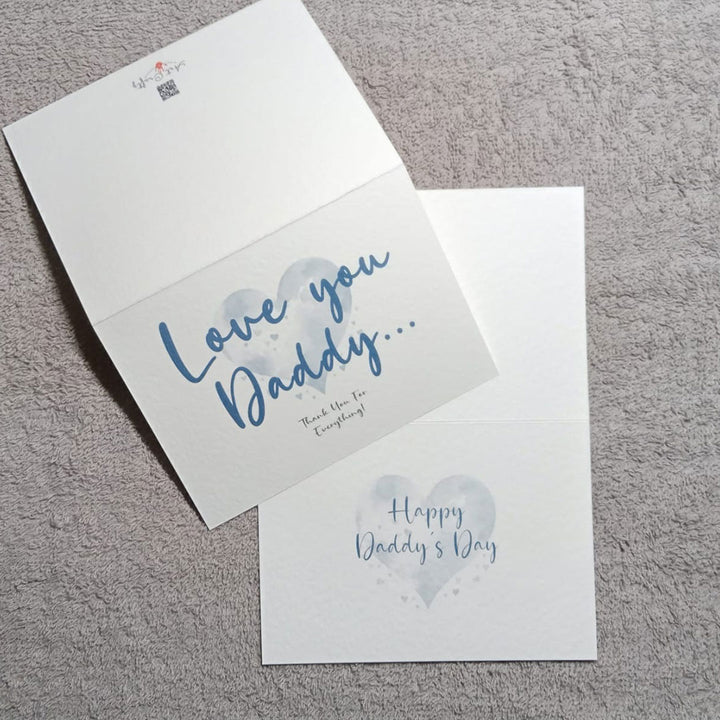 Love you
Daddy...
Thank You For
Everything!
Happy
Daddy's Day